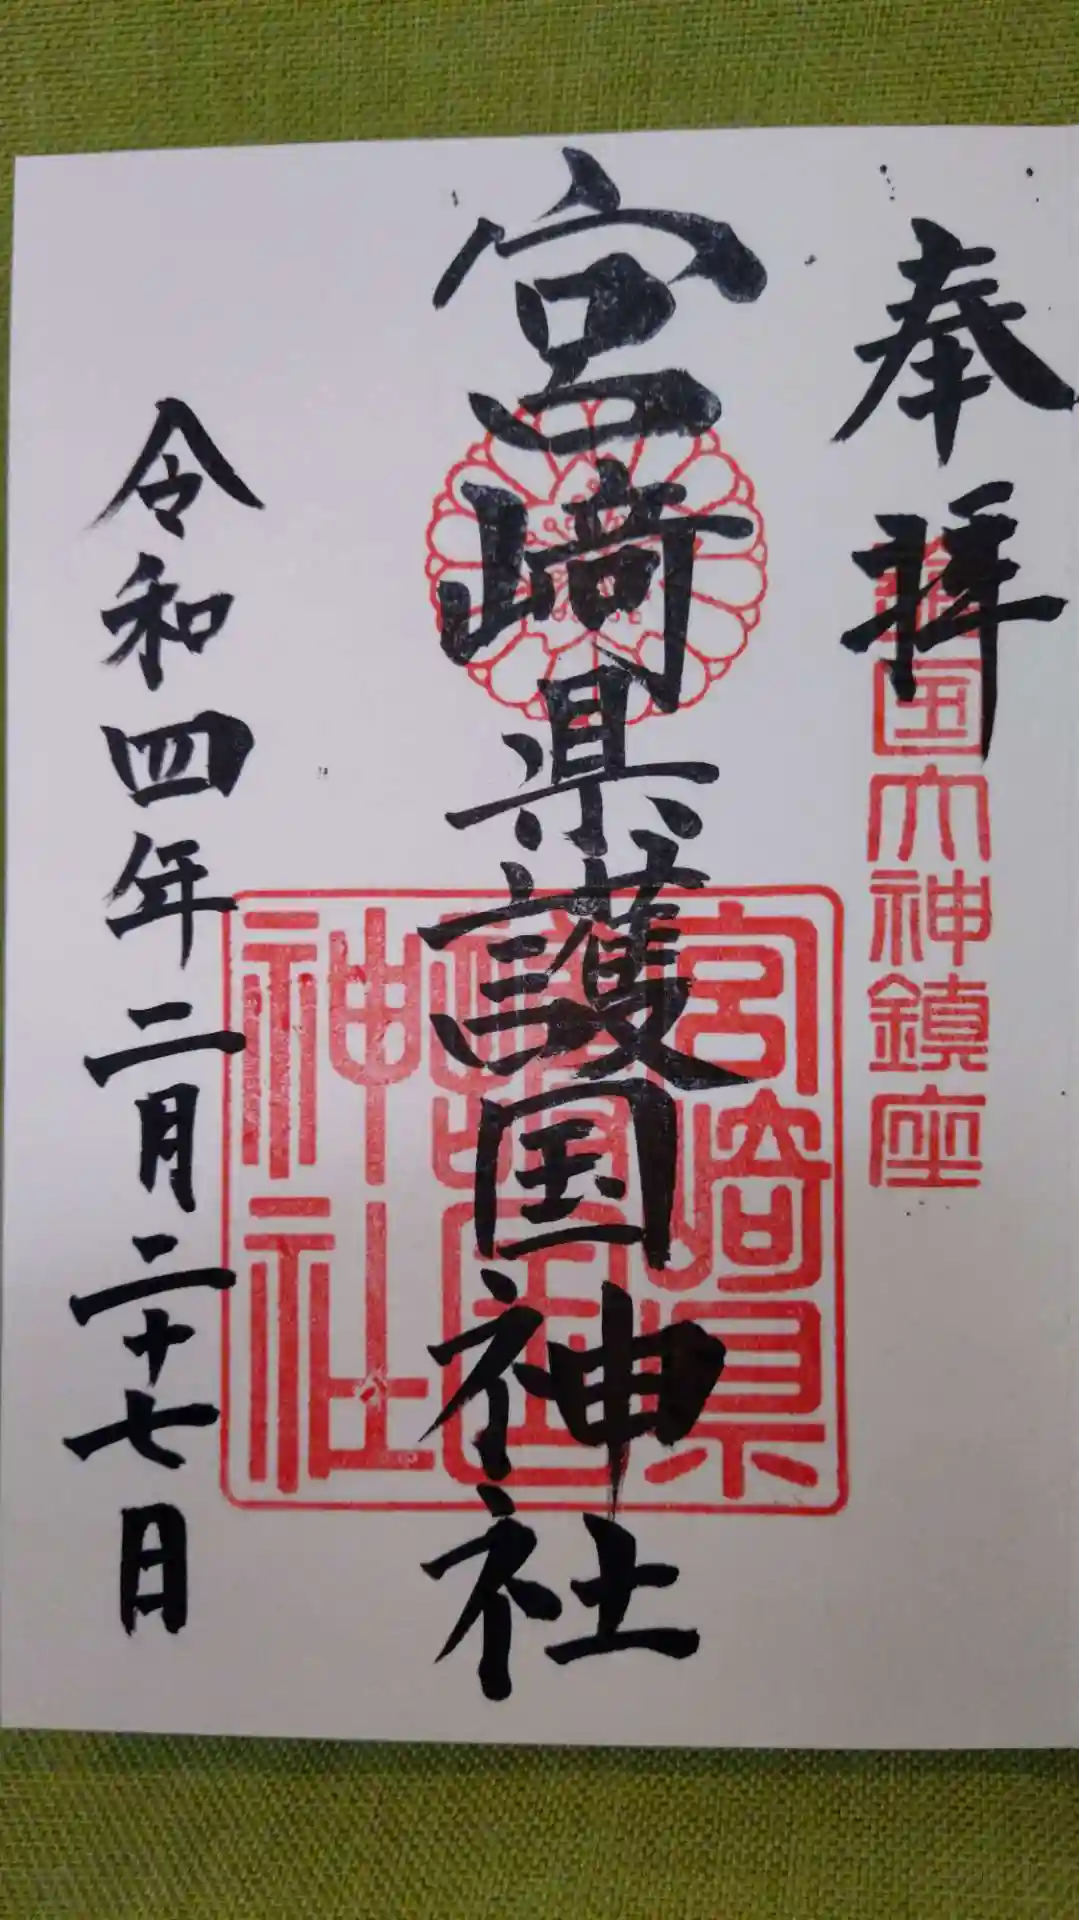 奉拝
国大神鎮座
宮﨑県護国神社
宮崎県
護国
神社
令和四年二月二十七日